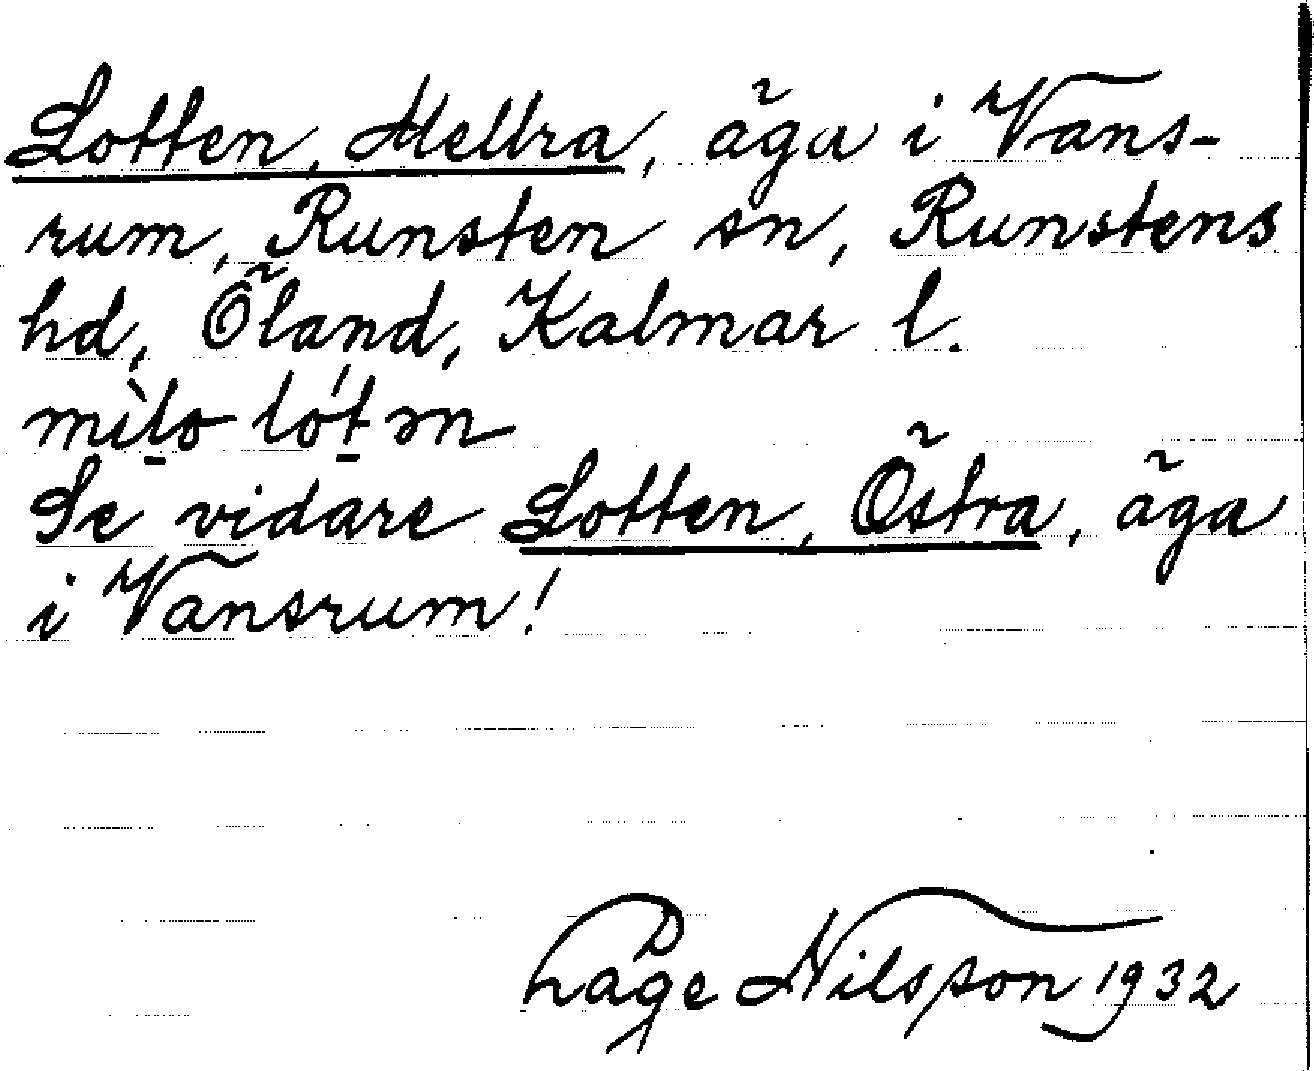 Lotten, Mellra, äga i Vans-
rum, Runsten sn, Runstens
hd, Öland, Kalmar l.
Se vidare Lotten, Östra, äga
i Vansrum!
Låge Nilsson 1932